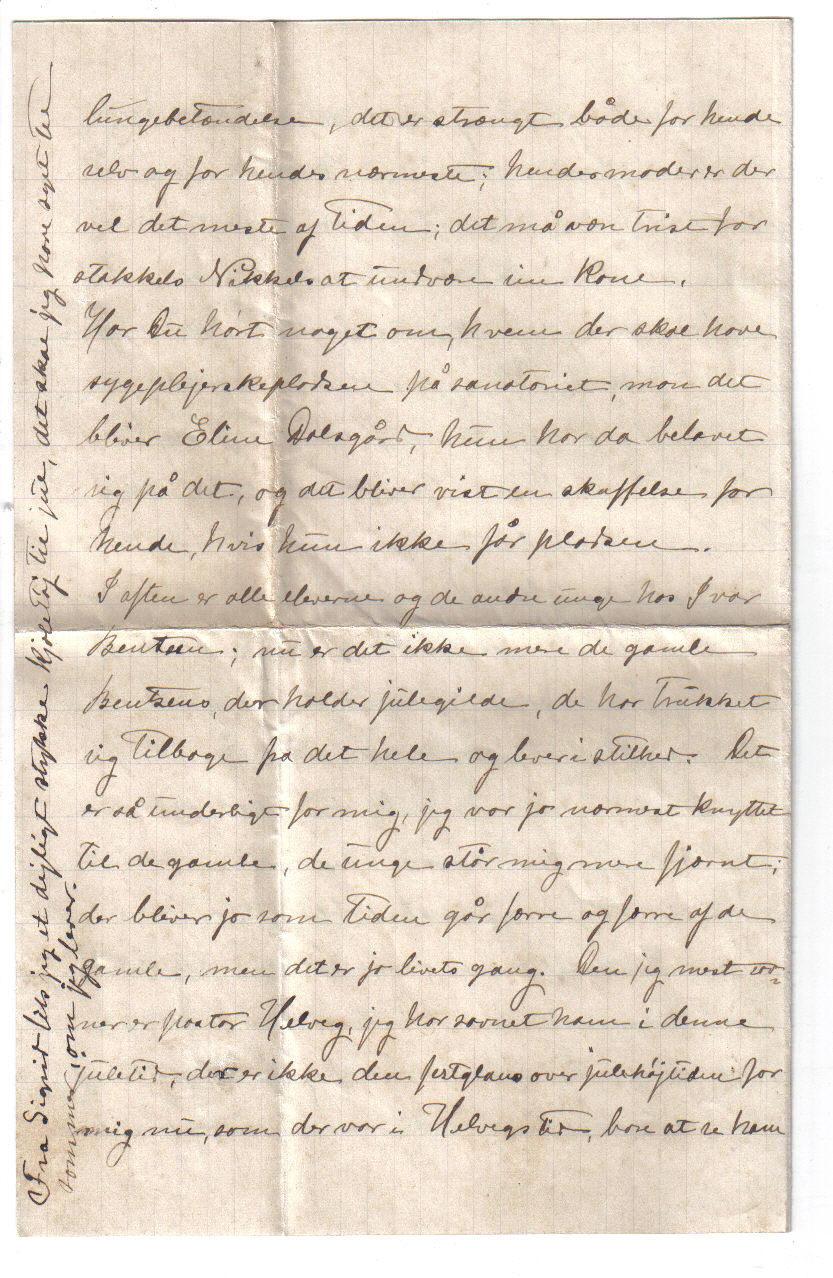 lungebetændelse, det er strængt både for hende
selv og for hendes nærmeste; hendes moder er der
vel det meste af tiden; det må være trist for
stakkels Nikkels at undvære sin kone.
Har Du hørt noget om, hvem der skal have
sygeplejerskepladsen på sanatoriet, mon det
bliver Eline Dalsgård, hun har da belavet
sig på det, og det bliver vist en skuffelse for
hende, hvis hun ikke får pladsen.
I aften er alle eleverne og de andre unge hos Ivar
Bentsen; nu er det ikke mere de gamle
Bentsens, der holder julegilde, de har trukket
sig tilbage fra det hele og lever i stilhed. Det
er så underligt for mig, jeg var jo nærmest knyttet
til de gamle, de unge står mig mere fjærnt;
der bliver jo som tiden går færre og færre af de
gamle, men det er jo livets gang. Den jeg mest sav-
ner er pastor Helveg, jeg har savnet ham i denne
juletid, der er ikke den festglans over julehøjtiden for
mig nu, som der var i Helvegs tid, bare at se ham
Fra Sigrid fik jeg et dejligt stykke kjoletøj til jul, det skal jeg have syet til
sommer, om jeg lever.